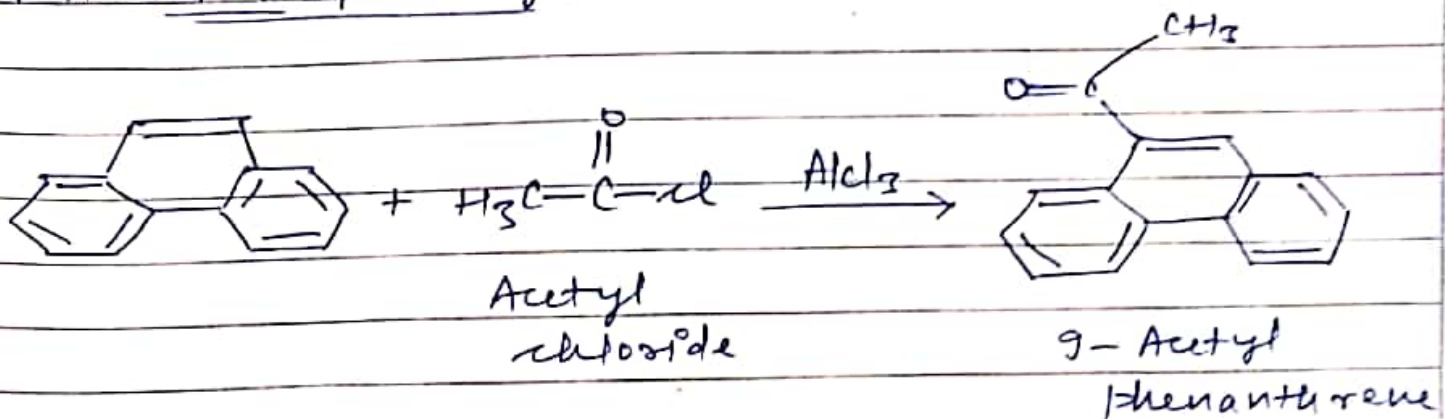 CH3
O=C
O
||
+ H3C-C-Cl AlCl3
Acetyl
chloride
9- Acetyl
phenanthrene